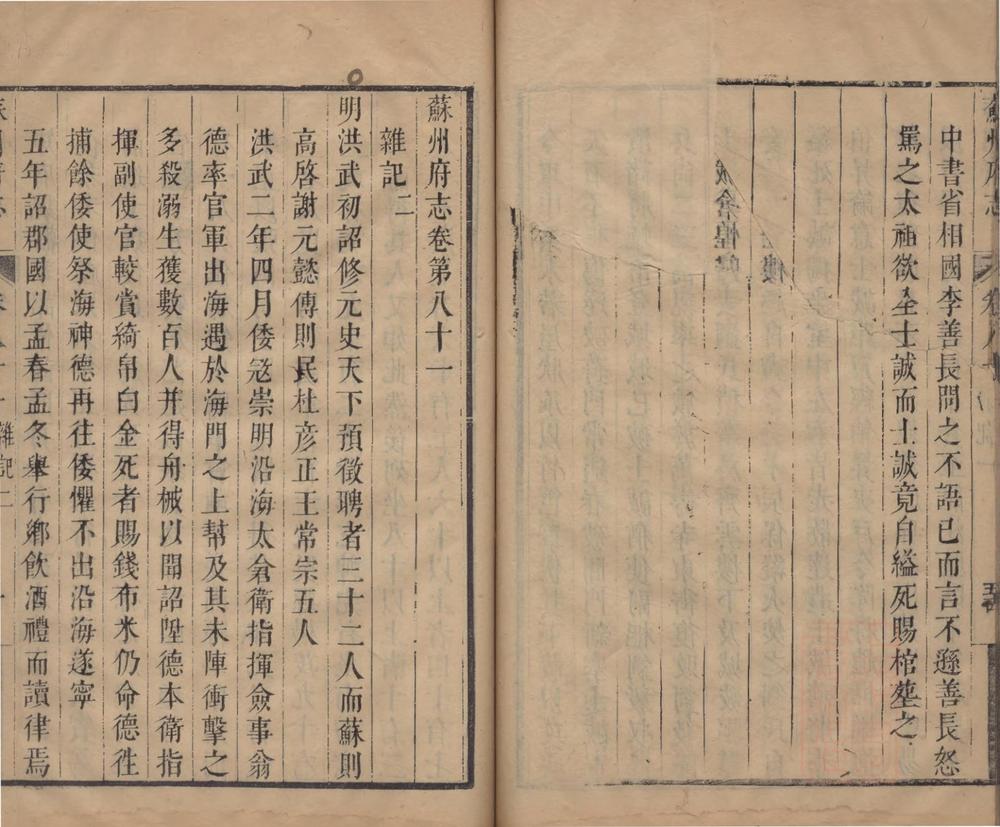 蘇州府志
中書省相國李善長問之不語已而言不遜善長怒
罵之太祖欲全士誠而士誠竟自縊死賜棺塟之
蘇州府志卷第八十一
雜記二
明洪武初詔修元史天下預徵聘者三十二人而蘇則
高啓謝元懿傅則民杜彦正王常宗五人
洪武二年四月倭寇崇明沿海太倉衛指揮僉事翁
德率官軍出海遇於海門之上幇及其未陣衝擊之
多殺溺生䕶數百人并得舟械以聞詔陞德本衛指
揮副使官較賞綺帛白金死者賜錢布米仍命德徃
捕餘倭使祭海神德再往倭懼不出沿海遂寧
五年詔郡國以孟春孟冬舉行鄉飲酒禮而讀律焉
雜記二